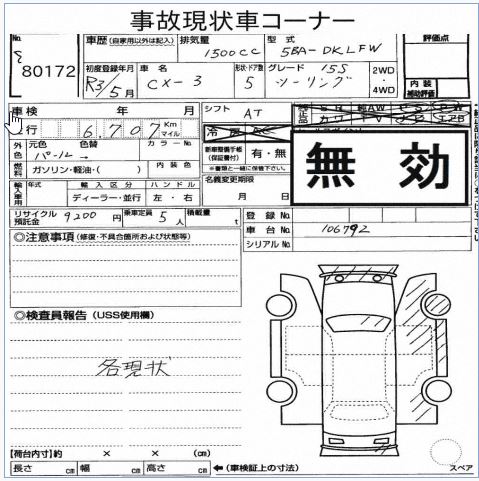 事故現状車コーナー
No.
80172
車歴 (自家用以外は記入)
排気量
1500CC
型式
5BA-DKLFW
評価点
初度登録年月
R3/5月
車名
CX-3
形状・ドア数
5
グレード
15S
ツーリング
2WD
・
4WD
内装
補助評価
車検 年 月
シフト
AT
走行 6,707 Km
マイル
冷房 AC
無効
外色
元色 色替
カラーNo.
パール→
新車整備手帳
(保証書付)
有・無
※書類と一緒に保管下さい。
燃料
ガソリン・軽油・( )
内装色
輸入車用
年式
輸入区分
ハンドル
ディーラー・並行
左・右
名義変更期限
月 日
リサイクル
預託金
9200円
乗車定員
5人
積載量
t
登録No.
車台No.
106792
シリアルNo.
◎注意事項 (修復・不具合箇所および状態等)
◎検査員報告 (USS使用欄)
各現状
【荷台内寸】約 × × (cm)
長さ cm 幅 cm 高さ cm
←(車検証上の寸法)
スペア